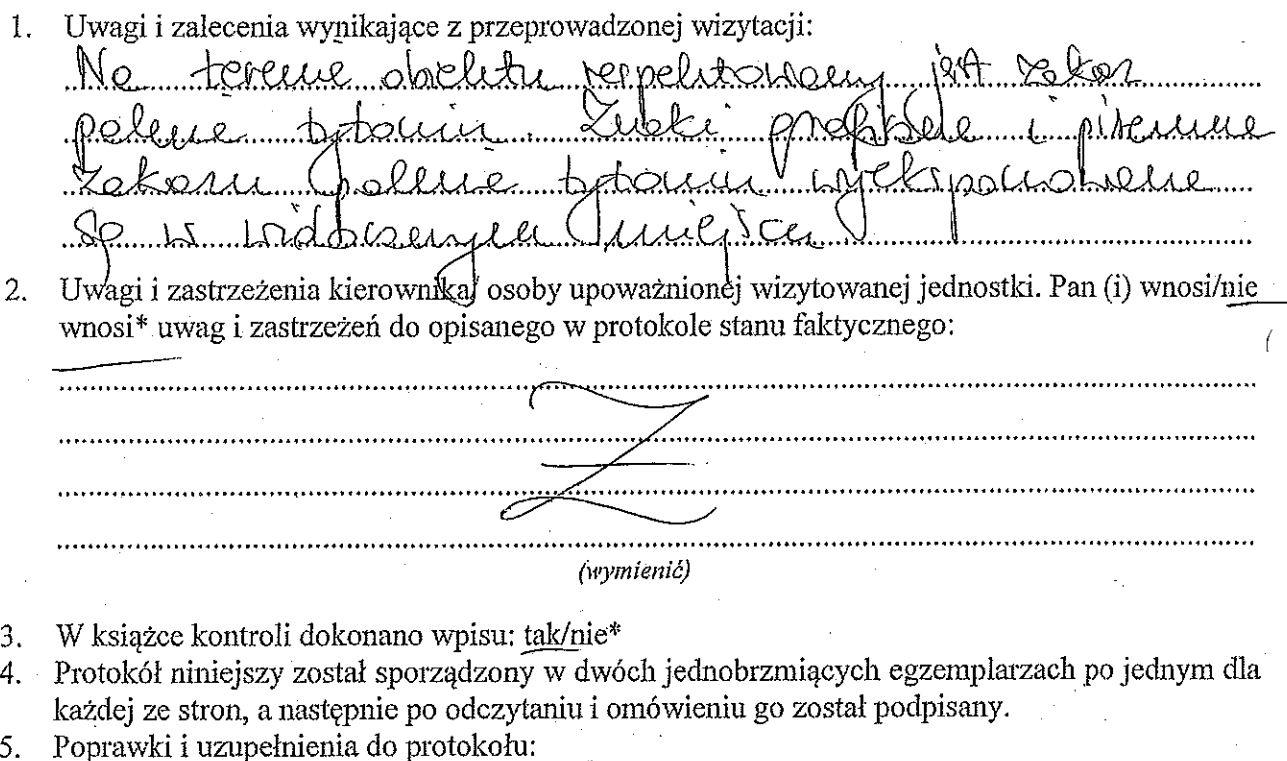 1. Uwagi i zalecenia wynikające z przeprowadzonej wizytacji:
Na terenie obiektu respektowany jest zakaz
palenia tytoniu. Znaki graficzne i pisemne
zakazu palenia tytoniu wyeksponowane
są w widocznym miejscu
2. Uwagi i zastrzeżenia kierownika/ osoby upoważnionej wizytowanej jednostki. Pan (i) wnosi/nie
wnosi* uwag i zastrzeżeń do opisanego w protokole stanu faktycznego:
Z
(wymienić)
3. W książce kontroli dokonano wpisu: tak/nie*
4. Protokół niniejszy został sporządzony w dwóch jednobrzmiących egzemplarzach po jednym dla
każdej ze stron, a następnie po odczytaniu i omówieniu go został podpisany.
5. Poprawki i uzupełnienia do protokołu: